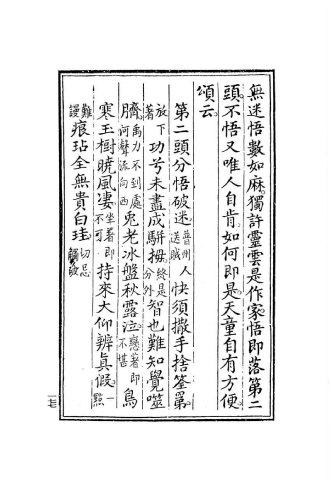 無迷悟數如麻獨許靈雲是作家悟即落第二
頭不悟又唯人自肯如何即是天童自有方便
頌云
第二頭分悟破迷普州人送賊快須撒手捨筌罤
放下著功兮未盡成駢拇終是分外智也難知覺噬
臍禹力不到處河聲流向西兔老冰盤秋露泣戀著即不堪鳥
寒玉樹曉風凄坐著即不可持來大仰辨真假一點
難謾痕玷全無貴白珪切忌